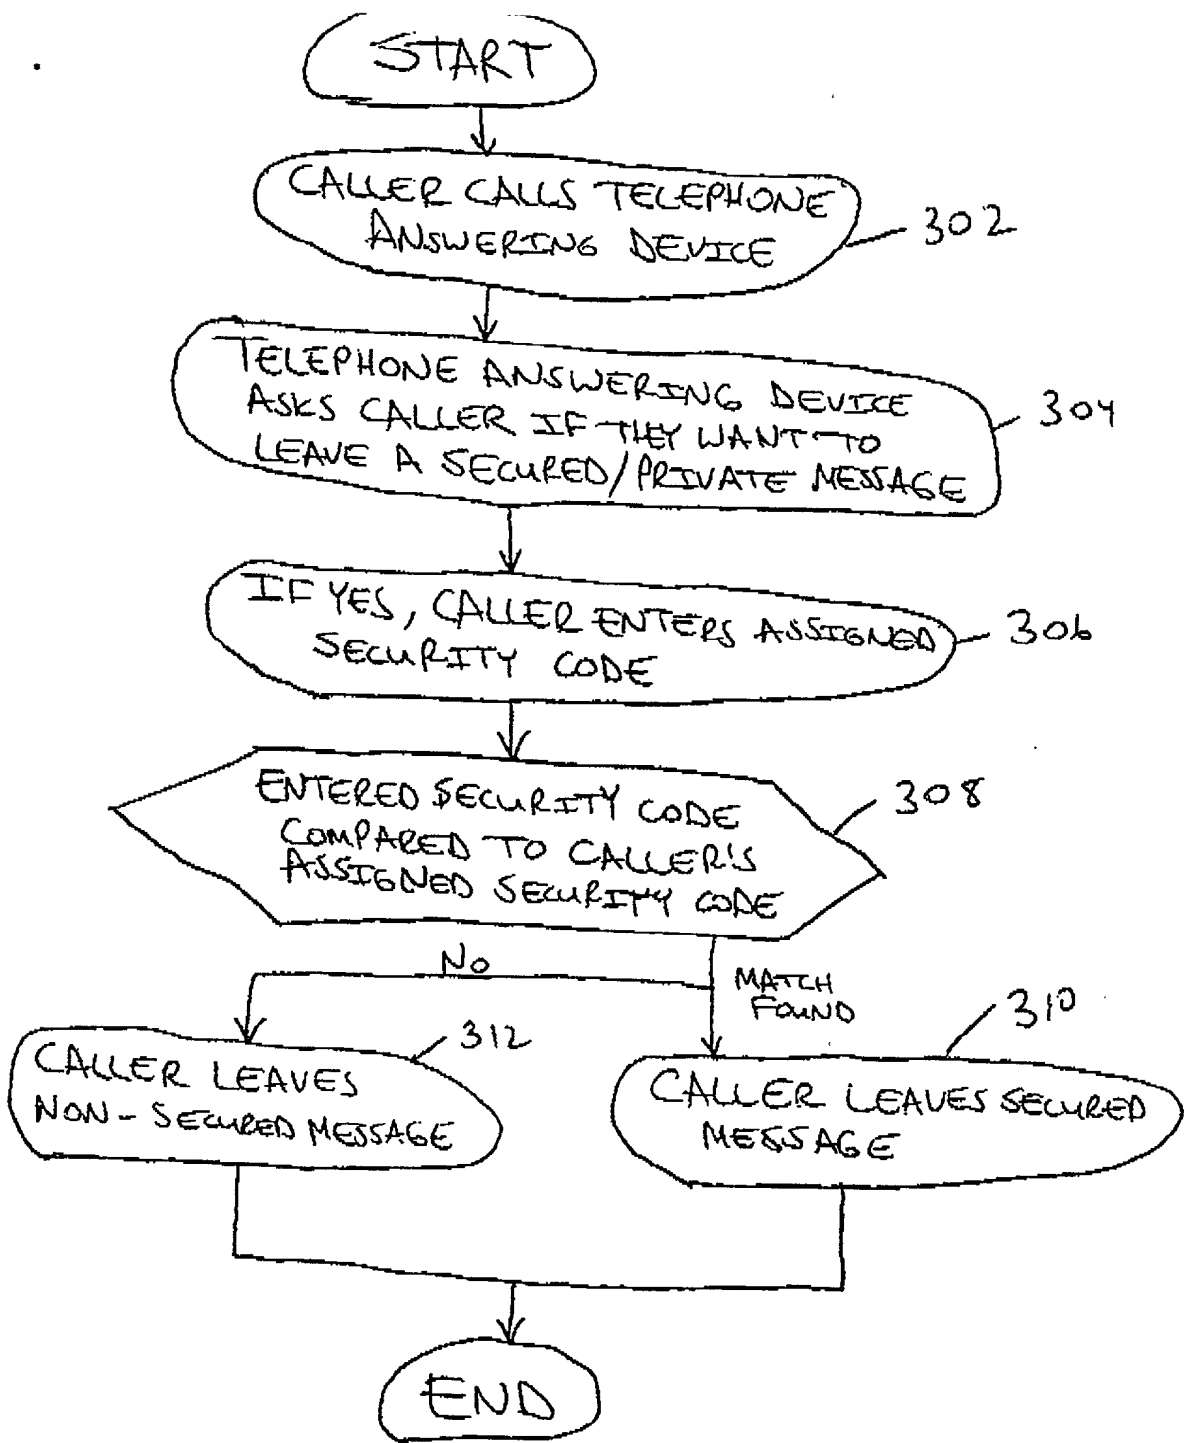 START
CALLER CALLS TELEPHONE
ANSWERING DEVICE
302
TELEPHONE ANSWERING DEVICE
ASKS CALLER IF THEY WANT TO
LEAVE A SECURED/PRIVATE MESSAGE
304
IF YES, CALLER ENTERS ASSIGNED
SECURITY CODE
306
ENTERED SECURITY CODE
COMPARED TO CALLER'S
ASSIGNED SECURITY CODE
308
NO
MATCH
FOUND
312
310
CALLER LEAVES
NON-SECURED MESSAGE
CALLER LEAVES SECURED
MESSAGE
END